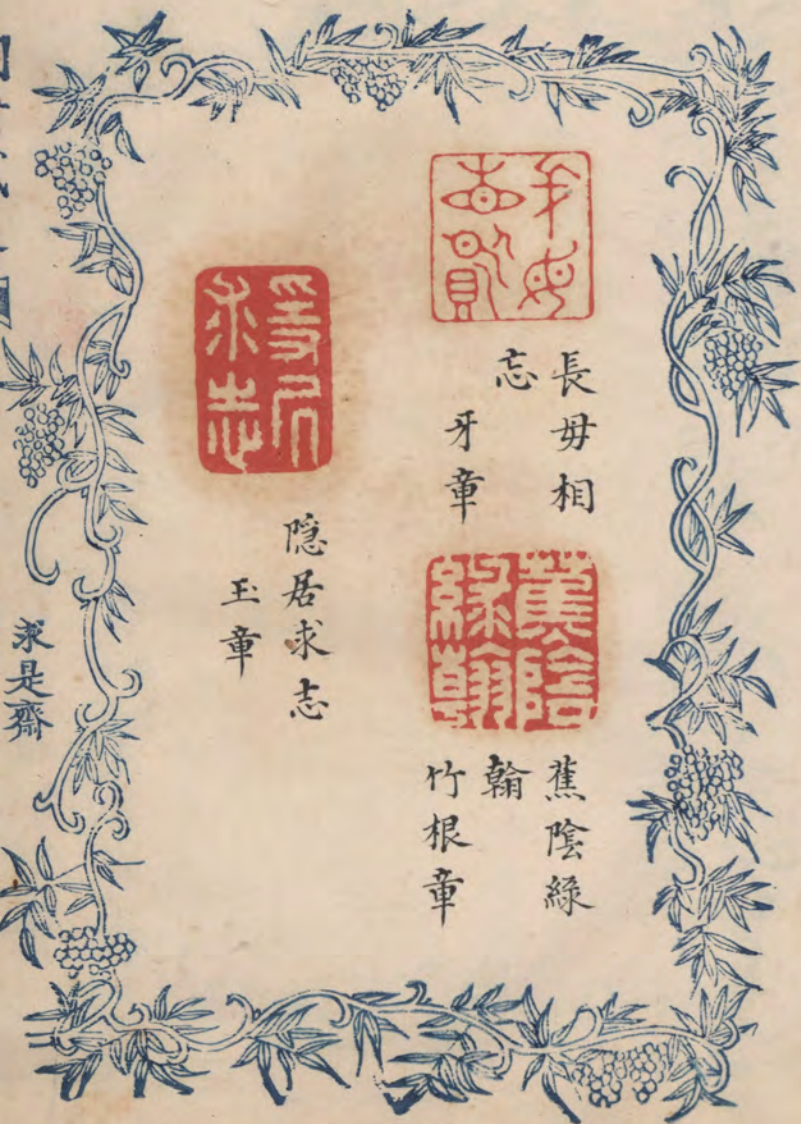 長毋相
忘
牙章
蕉陰綠
翰
竹根章
隱居求志
隱居求志
玉章
求是齋